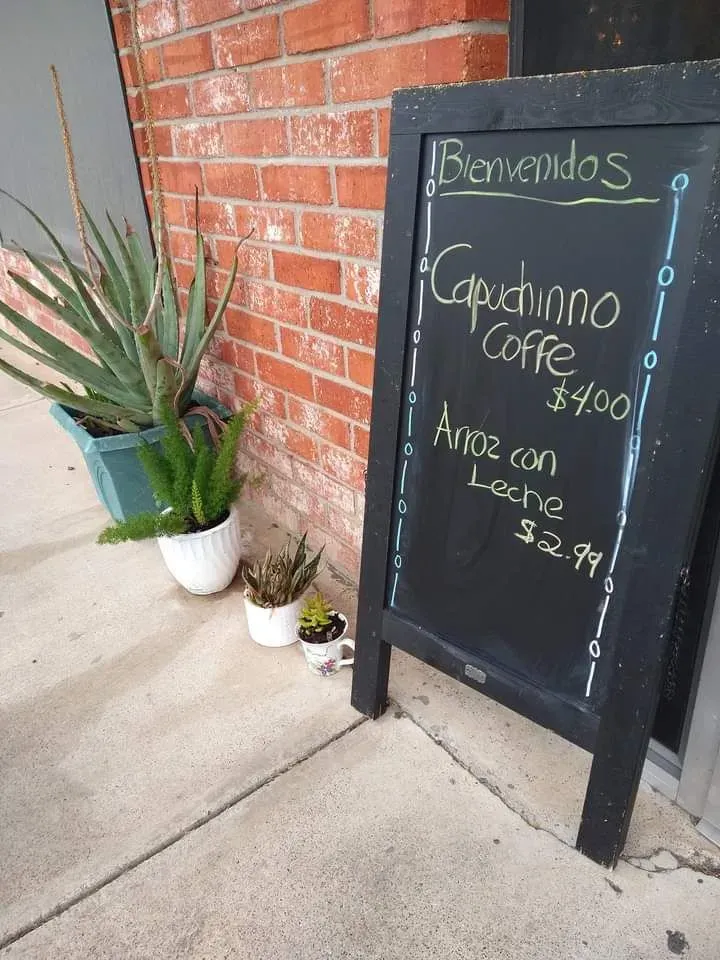 Bienvenidos
Capuchinno
Coffe
$4.00
Arroz con
Leche
$2.99